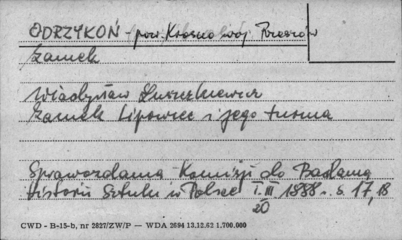 ODRZYKOŃ pow. Krosno woj. Rzeszów
Zamek
Władysław Łuszczkiewicz
Zamek Lipowiec i jego turma
Sprawozdania Komisji do Badania
Historii Sztuki w Polsce T. III 1888 r. s. 17, 18
20
CWD - B-15-b, nr 2827/ZW/P — WDA 2694 13.12.62 1.700.000